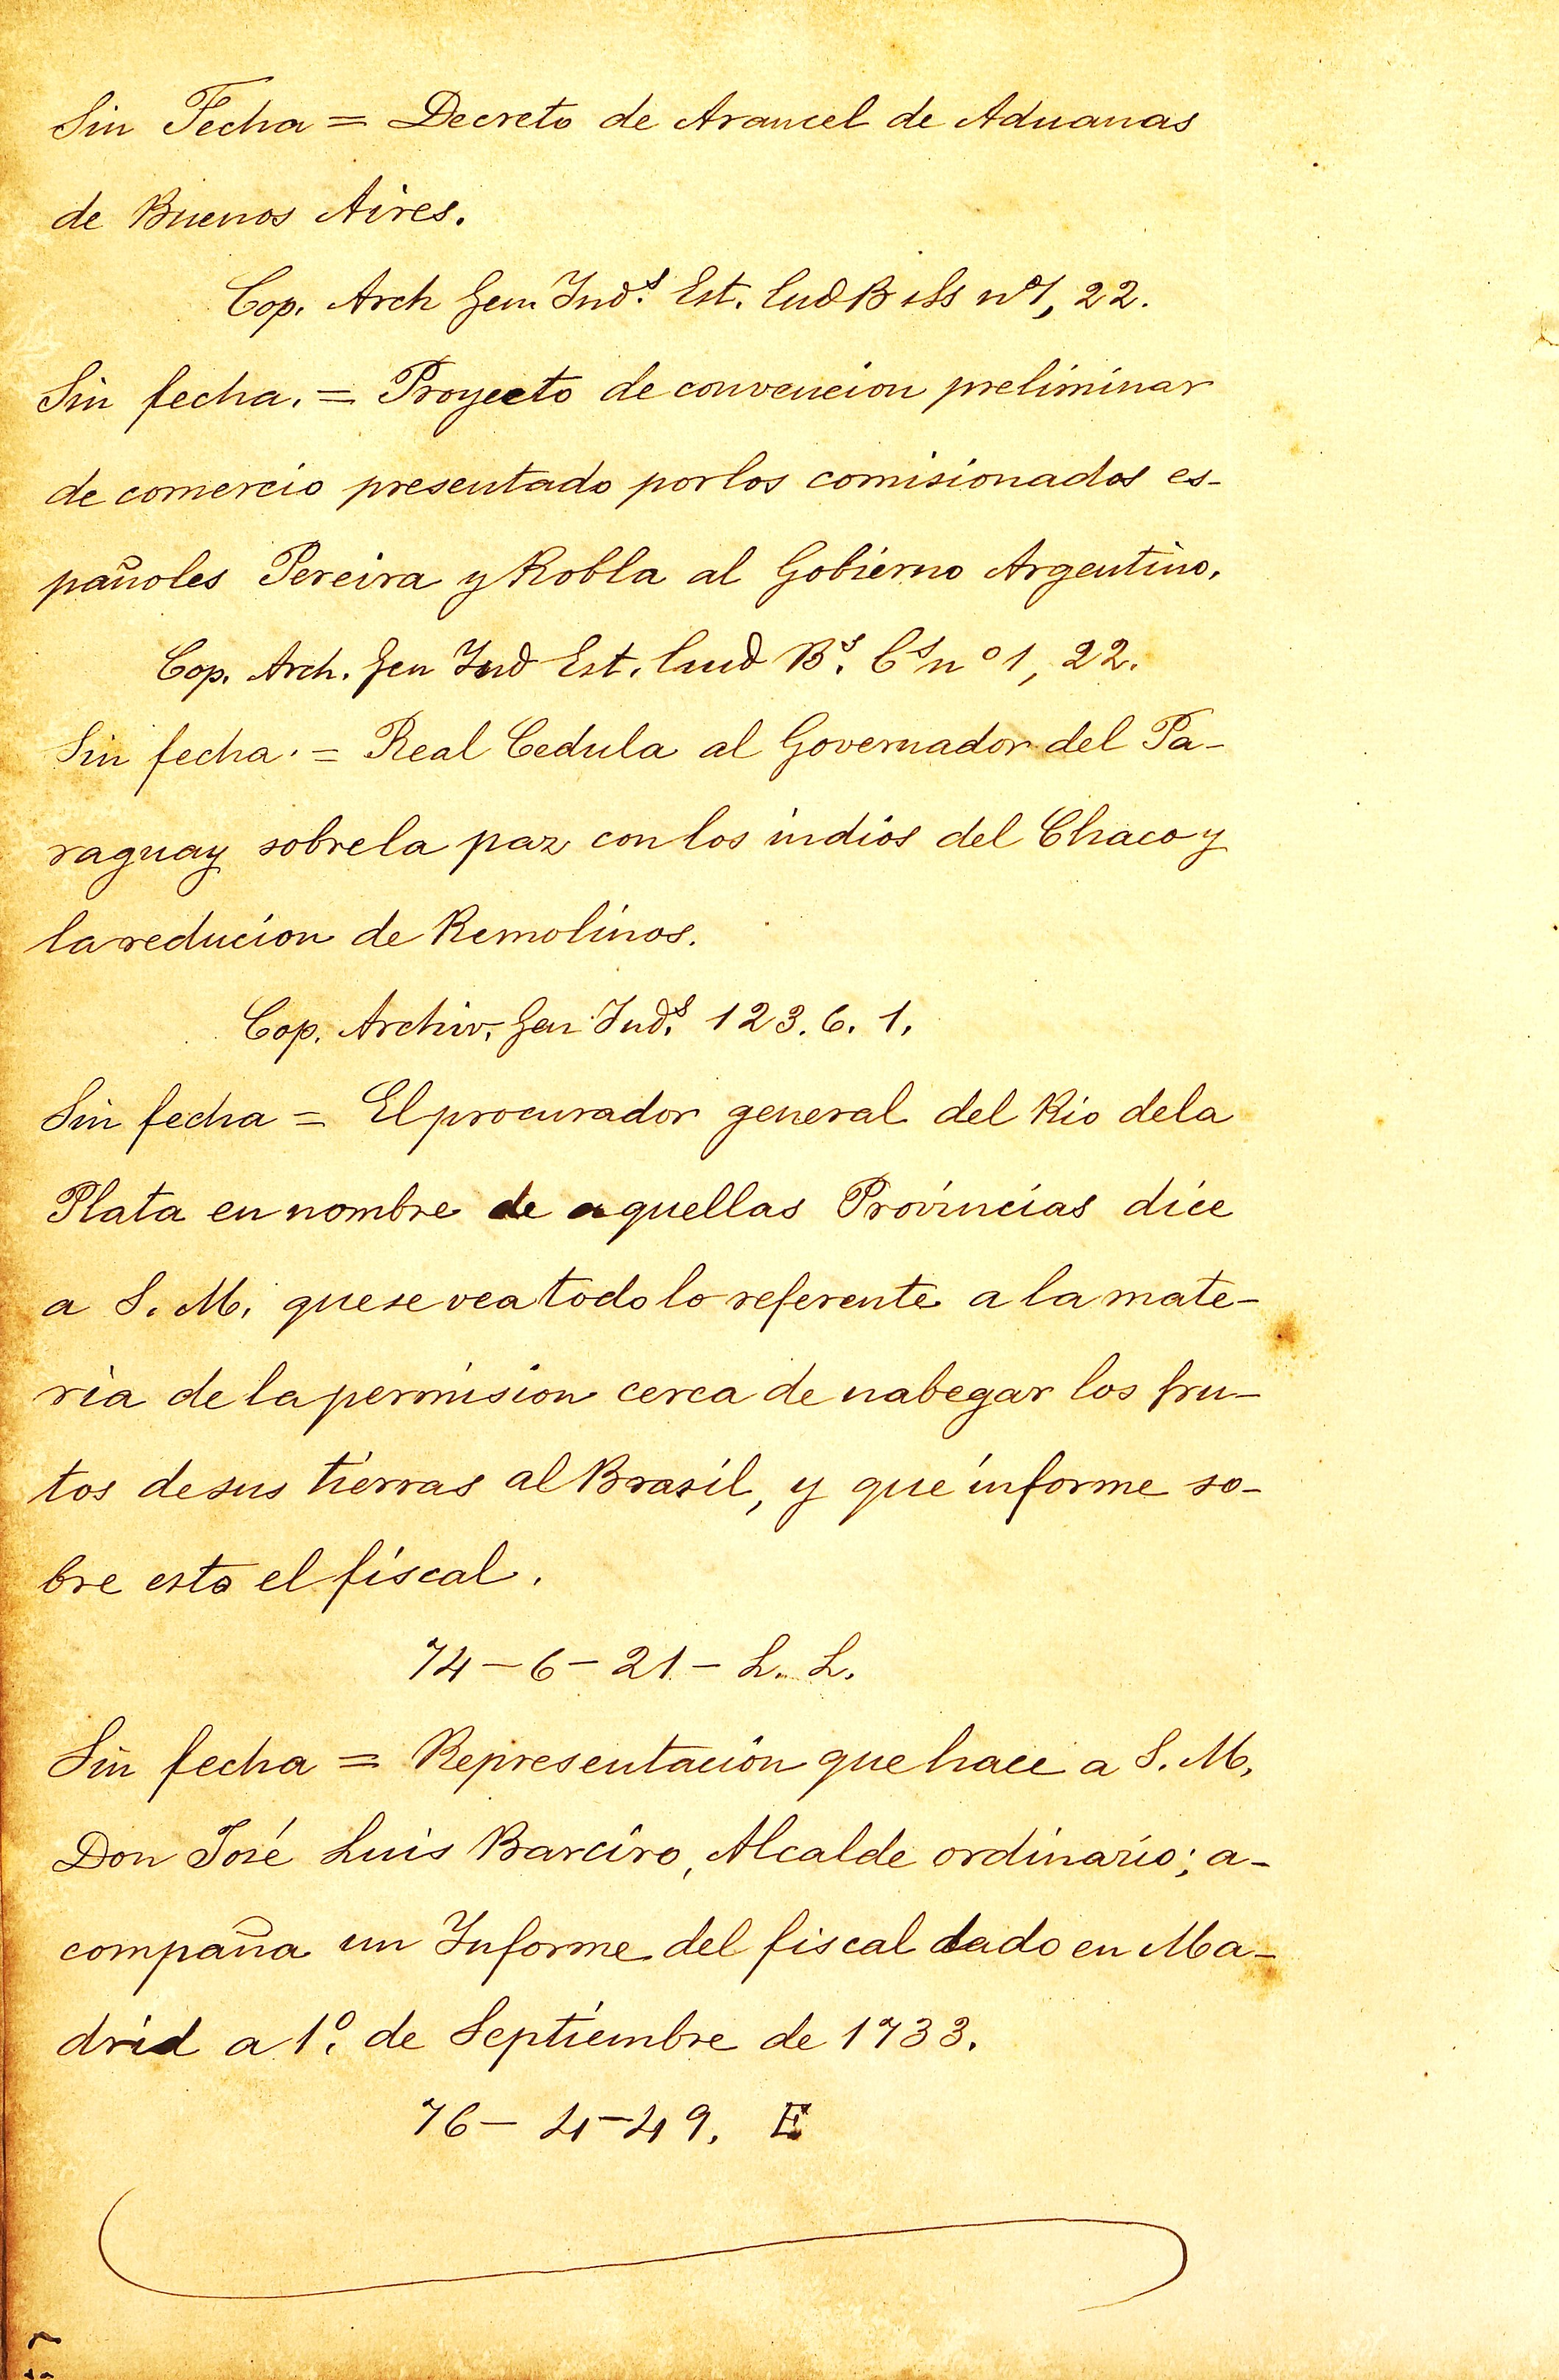 Sin Fecha = Decreto de Arancel de Aduanas
de Buenos Aires.
Cop. Arch Gen. Ind.s Est. nº 1, 22.
Sin fecha. = Proyecto de convencion preliminar
de comercio presentado por los comisionados es-
pañoles Pereira y Robla al Gobierno Argentino.
Cop. Arch. Gen Ind Est. nº 1, 22.
Sin fecha. = Real Cedula al Governador del Pa-
raguay sobre la paz con los indios del Chaco y
la reducion de Remolinos.
Cop. Archiv. Gen Ind.s 123. 6. 1.
Sin fecha = El procurador general del Rio de la
Plata en nombre de aquellas Provincias dice
a S. M. que se vea todo lo referente a la mate-
ria de la permision cerca de nabegar los fru-
tos de sus tierras al Brasil, y que informe so-
bre esto el fiscal.
74 - 6 - 21 - L. L.
Sin fecha = Representación que hace a S. M.
Don José Luis Barciro, Alcalde ordinario; a-
compaña un Informe del fiscal dado en Ma-
drid a 1º. de Septiembre de 1733.
76 - 4 - 49. E